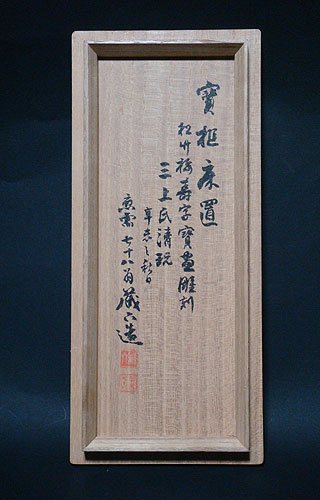 寶柜床置
松竹梅壽字寶盡雕刻
三上氏清玩
辛亥之秋日
七十八翁藏六造